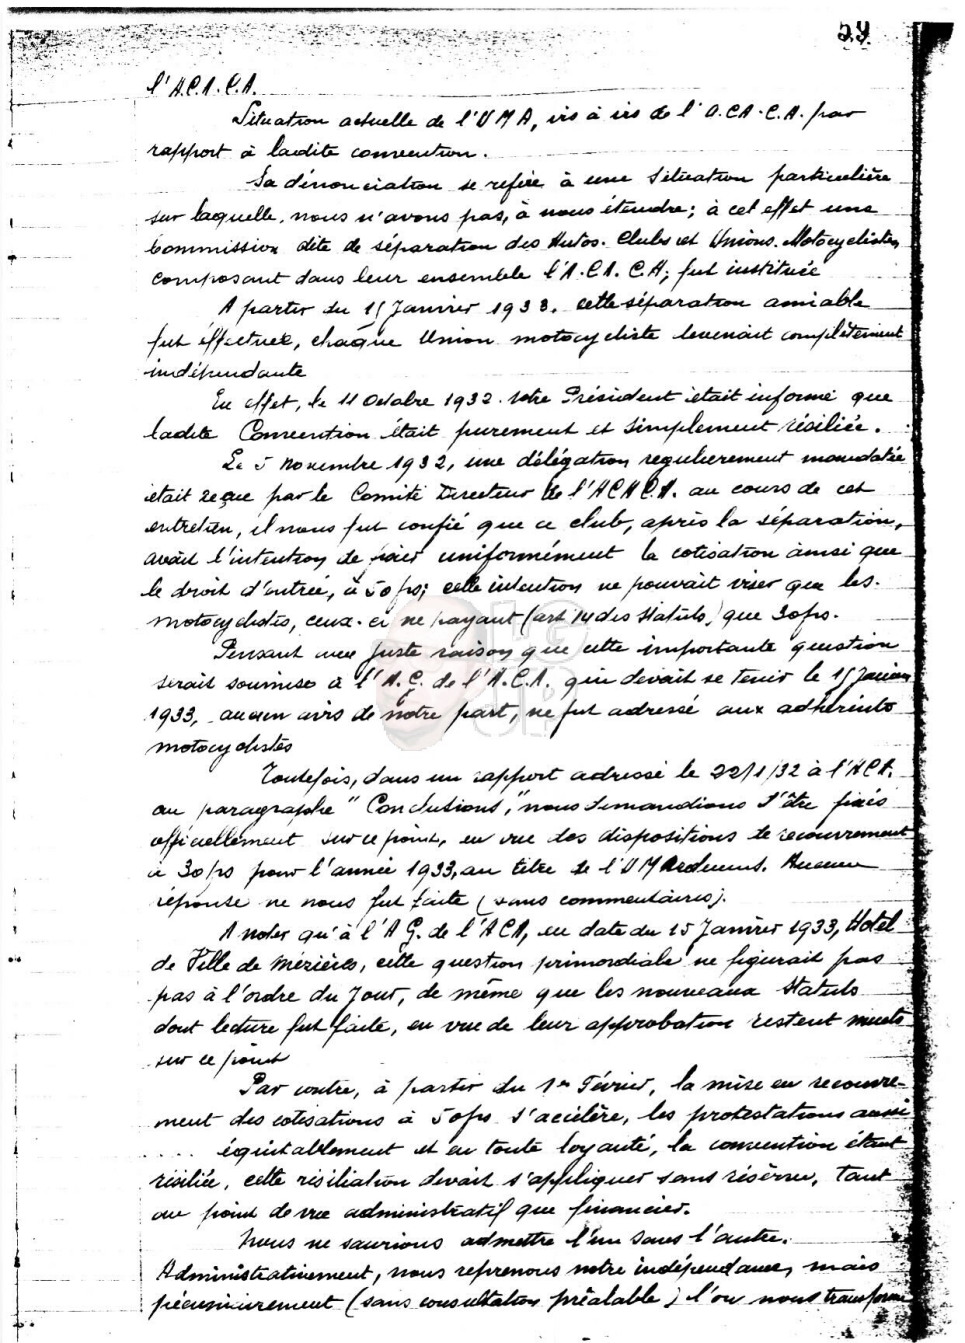 59
l'A.C.A.C.A.
Situation actuelle de l'UMA, vis à vis de l'A.CA.C.A. par
rapport à ladite convention.
Sa dénonciation se refère à une situation particulière
sur laquelle, nous n'avons pas, à nous étendre; à cet effet une
Commission dite de séparation des Autos-Clubs et Unions Motocyclistes
composant dans leur ensemble l'A.CA.CA; fut instituée
A partir du 15 Janvier 1933. cette séparation amiable
fut effectuée, chaque Union motocycliste devenait complètement
indépendante
En effet, le 11 Octobre 1932. Votre Président était informé que
ladite Convention était purement et simplement résiliée.
Le 5 novembre 1932, une délégation regulierement mandatée
était reçue par le Comité Directeur de l'ACACA. au cours de cet
entretien, il nous fut confié que ce club, après la séparation,
avait l'intention de fixer uniformément la cotisation ainsi que
le droit d'entrée, à 50 frs; cette intention ne pouvait viser que les
motocyclistes, ceux-ci ne payant (art 14 des Statuts) que 30frs.
Pensant avec juste raison que cette importante question
serait soumise à l'A.G. de l'A.C.A. qui devait se tenir le 15 Janvier
1933, aucun avis de nôtre part, ne fut adressé aux adhérents
motocyclistes
Toutefois, dans un rapport adressé le 22/1/32 à l'ACA.
au paragraphe "Conclusions", nous demandions d'être fixés
officiellement sur ce point, en vue des dispositions de recouvrement
à 30frs pour l'année 1933, au titre de l'UMArdennes. Aucune
réponse ne nous fut faite (sans commentaires).
A noter qu'à l'AG. de l'ACA, en date du 15 Janvier 1933, Hotel
de Ville de Mézières, cette question primordiale ne figurait pas
pas à l'ordre du Jour, de même que les nouveaux Statuts
dont lecture fut faite, en vue de leur approbation restent muets
sur ce point
Par contre, à partir du 1er Février, la mise en recouvre-
ment des cotisations à 50frs s'accélère, les protestations aussi
.... équitablement et en toute loyauté, la convention étant
résiliée, cette résiliation devait s'appliquer sans réserve, tant
au point de vue administratif que financier.
Nous ne saurions admettre l'un sans l'autre.
Administrativement, nous reprenons notre indépendance, mais
pécuniairement (sans consultation préalable) l'on nous transforme